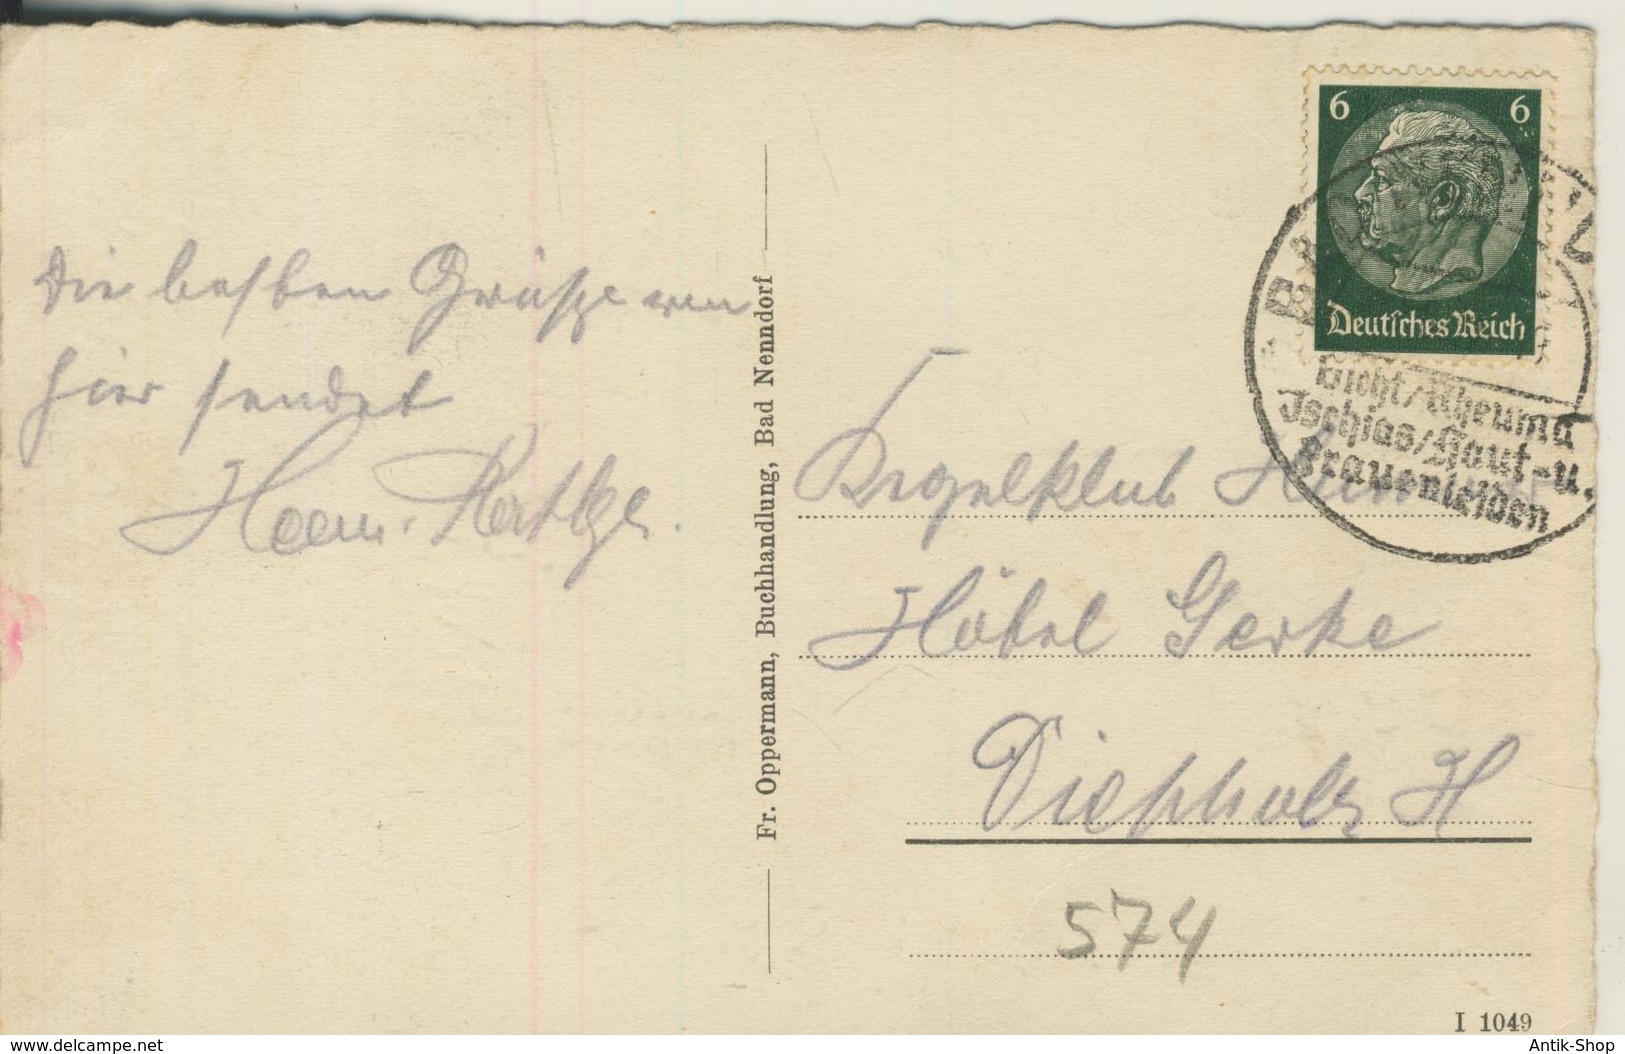 Die besten Grüße von
hier sendet
Fr. Oppermann, Buchhandlung, Bad Nenndorf
6 6
Deutsches Reich
Gicht/Rheuma
Ischias/Haut-u.
Frauenleiden
Kegelklub
Hôtel Gerke
Diepholz H
574
I 1049
www.delcampe.net
Antik-Shop